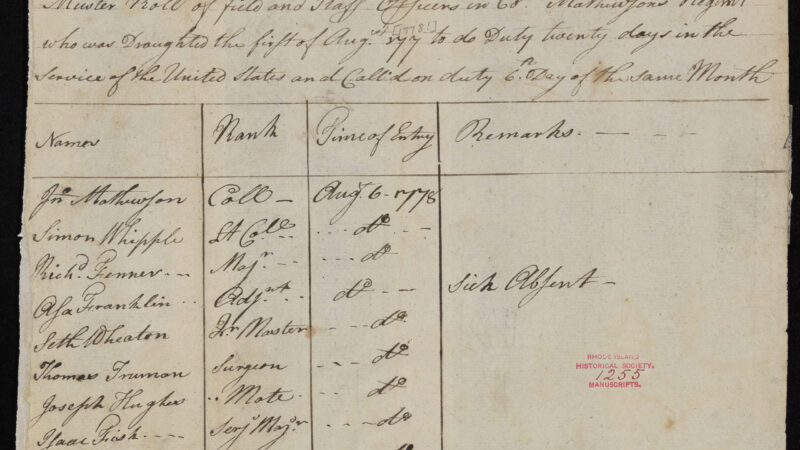 Muster Roll of field and Staff Officers in Col. Mathewsons Regimt
who was Draughted the first of Aug. 177 [1778] to do Duty twenty days in the
Service of the United States and Call'd on duty 6th Day of the same Month
Names Rank Time of Entry Remarks
Jno Mathewson Coll Augt 6 1778
Simon Whipple Lt Coll do
Richd Fenner Majr do
Asa Franklin Adjnt do Sick Absent
Seth Wheaton Qr Master do
Thomas Truman Surgeon do
Joseph Hughes Mate do
Isaac Fisk Serjt Majr do
RHODE ISLAND
HISTORICAL SOCIETY.
1255
MANUSCRIPTS.